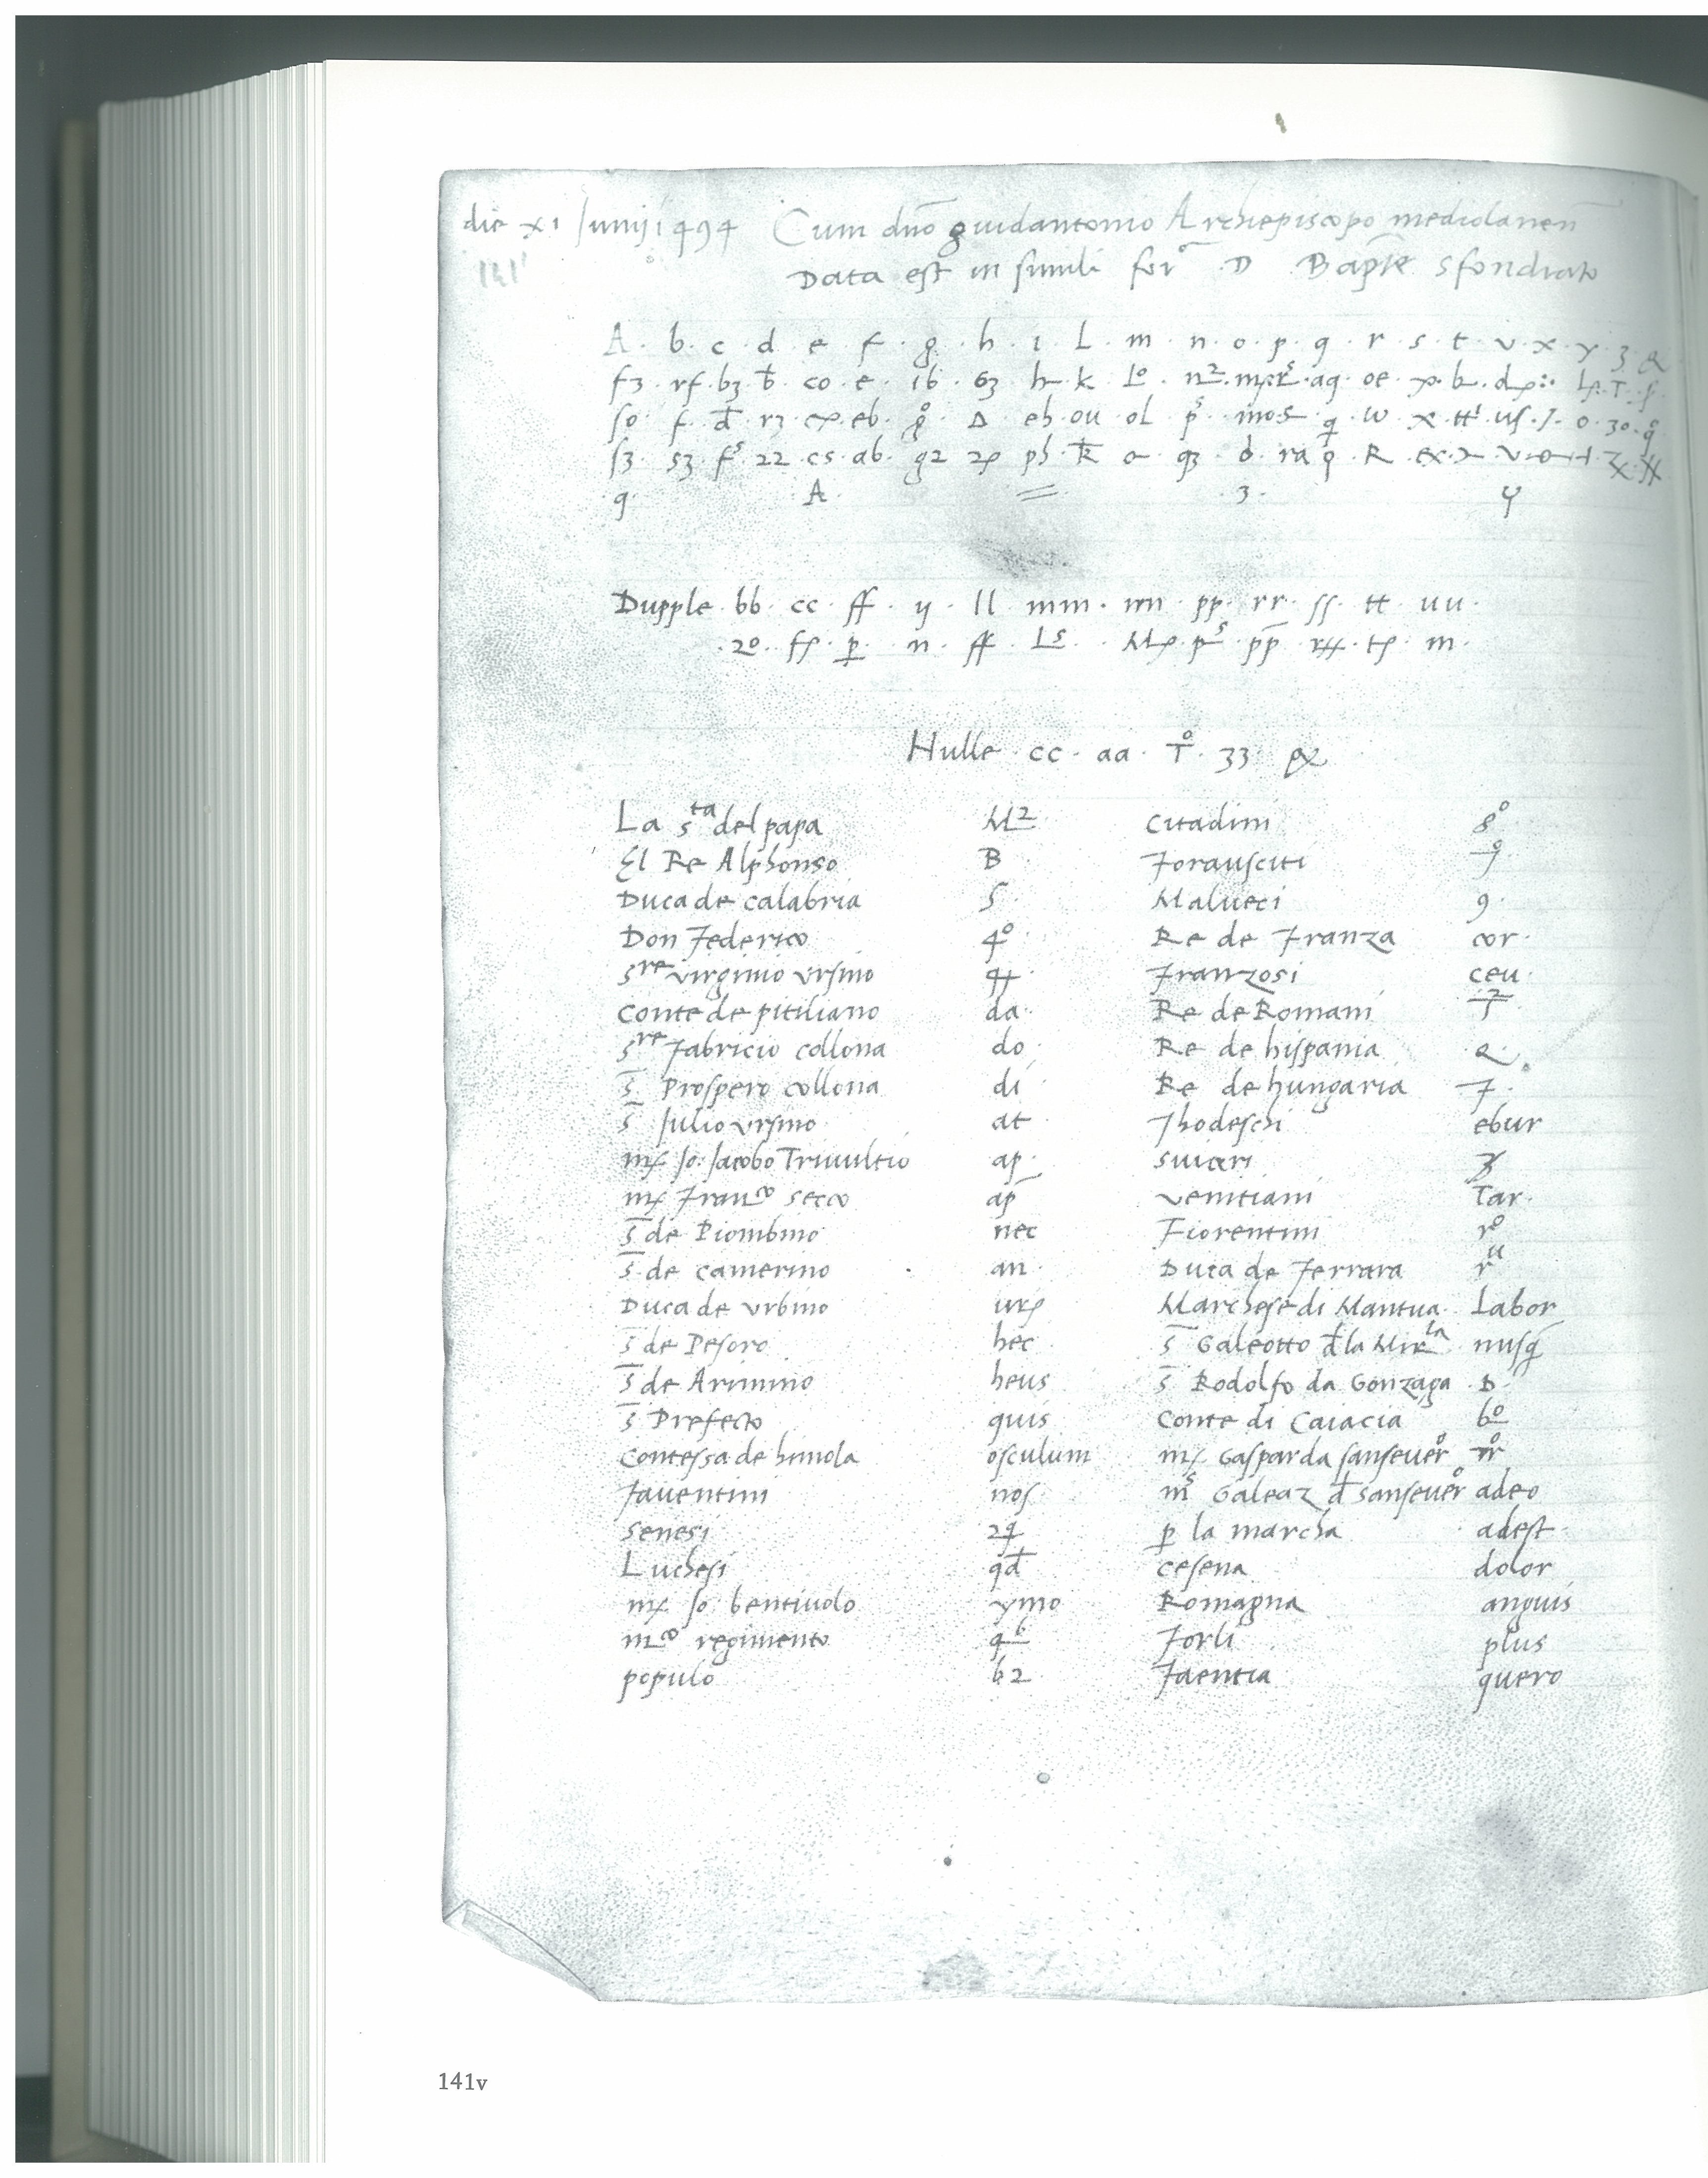 die xi Junij 1494 Cum dno guidantonio Archiepiscopo mediolanen
Data est in simili for D Bapte Sfondrato
A · b · c · d · e · f · g · h · i · L · m · n · o · p · q · r · s · t · v · x · y · 3 · &
f3 · rf · b3 · b · co · e · ib · 63 · h · k · Lo · aq · oe
so · f · d · r3 · eb · g · Δ · eh · ou · ol · ps · mo · q · w · x · tt · us · o · 30 · q
s3 · 53 · fs · 22 · cs · ab · g2 · ph · k · q3 · d · ra · q · R · ex
q · A · = · 3 · y
Dupple · bb · cc · ff · ij · ll · mm · nn · pp · rr · ss · tt · uu ·
20 · p · n · ff · Ls · pp · m ·
Nulle · cc · aa · T° · 33
La sta del papa M2 Citadini 8°
El Re Alphonso B Forausciti
Duca de calabria S Malueci 9
Don Federico 4° Re de Franza cor
Sre virginio vrsino Franzosi ceu
Conte de pitiliano da Re de Romani
Sre Fabricio collona do Re de hispania
S̅ Prospero collona di Re de hungaria 7
S̅ Julio vrsino at Thodeschi ebur
mß Jo: Jacobo Triuultio ap Suiceri
mß Franco secco ap̅ Venitiani Tar
S̅ de Piombino nec Fiorentini r°
S̅ de camerino an Duca de Ferrara ru
Duca de vrbino Marchese di Mantua Labor
S̅ de Pesoro hec S̅ Galeotto dla Mirla nusq
S̅ de Arimino heus S̅ Rodolfo da Gonzaga D
S̅ Prefecto quis Conte di Caiacia b°
Contessa de himola osculum mß Gaspar da sanseuer°
Fauentini nos ms Galeaz d sanseuer° adeo
Senesi 24 p la marcha adest
Luchesi qd Cesena dolor
mß Jo: bentiuolo ymo Romagna anguis
mco regimento q6 Forli plus
populo b2 Faentia quero
141v